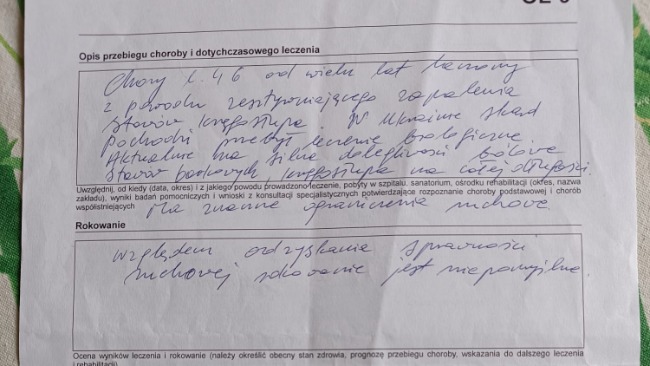 Opis przebiegu choroby i dotychczasowego leczenia
Chory l. 46 od wielu lat leczony
z powodu zesztywniającego zapalenia
stawów kręgosłupa. W Ukrainie skąd
pochodzi przebył leczenie biologiczne.
Aktualnie ma silne dolegliwości bólowe
stawów barkowych, kręgosłupa na całej długości.
Uwzględnij, od kiedy (data, okres) i z jakiego powodu prowadzono leczenie, pobyty w szpitalu, sanatorium, ośrodku rehabilitacji (okres, nazwa
zakładu), wyniki badań pomocniczych i wnioski z konsultacji specjalistycznych potwierdzające rozpoznanie choroby podstawowej i chorób
współistniejących
Ma znaczne ograniczenia ruchowe
Rokowanie
względem odzyskania sprawności
ruchowej rokowanie jest niepomyślne.
Ocena wyników leczenia i rokowanie (należy określić obecny stan zdrowia, prognozę przebiegu choroby, wskazania do dalszego leczenia
i rehabilitacji)